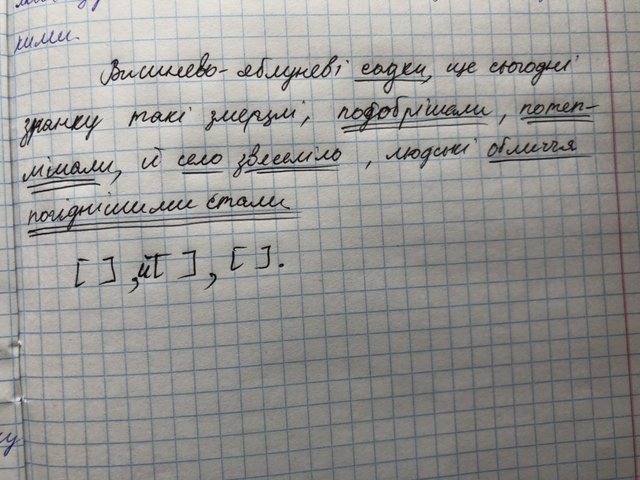 кими.
Вишнево-яблуневі садки, ще сьогодні
зранку такі змерзлі, подобрішали, потеп-
лішали, й село звеселіло, людські обличчя
погіднішими стали
[ ], й [ ], [ ].
ку